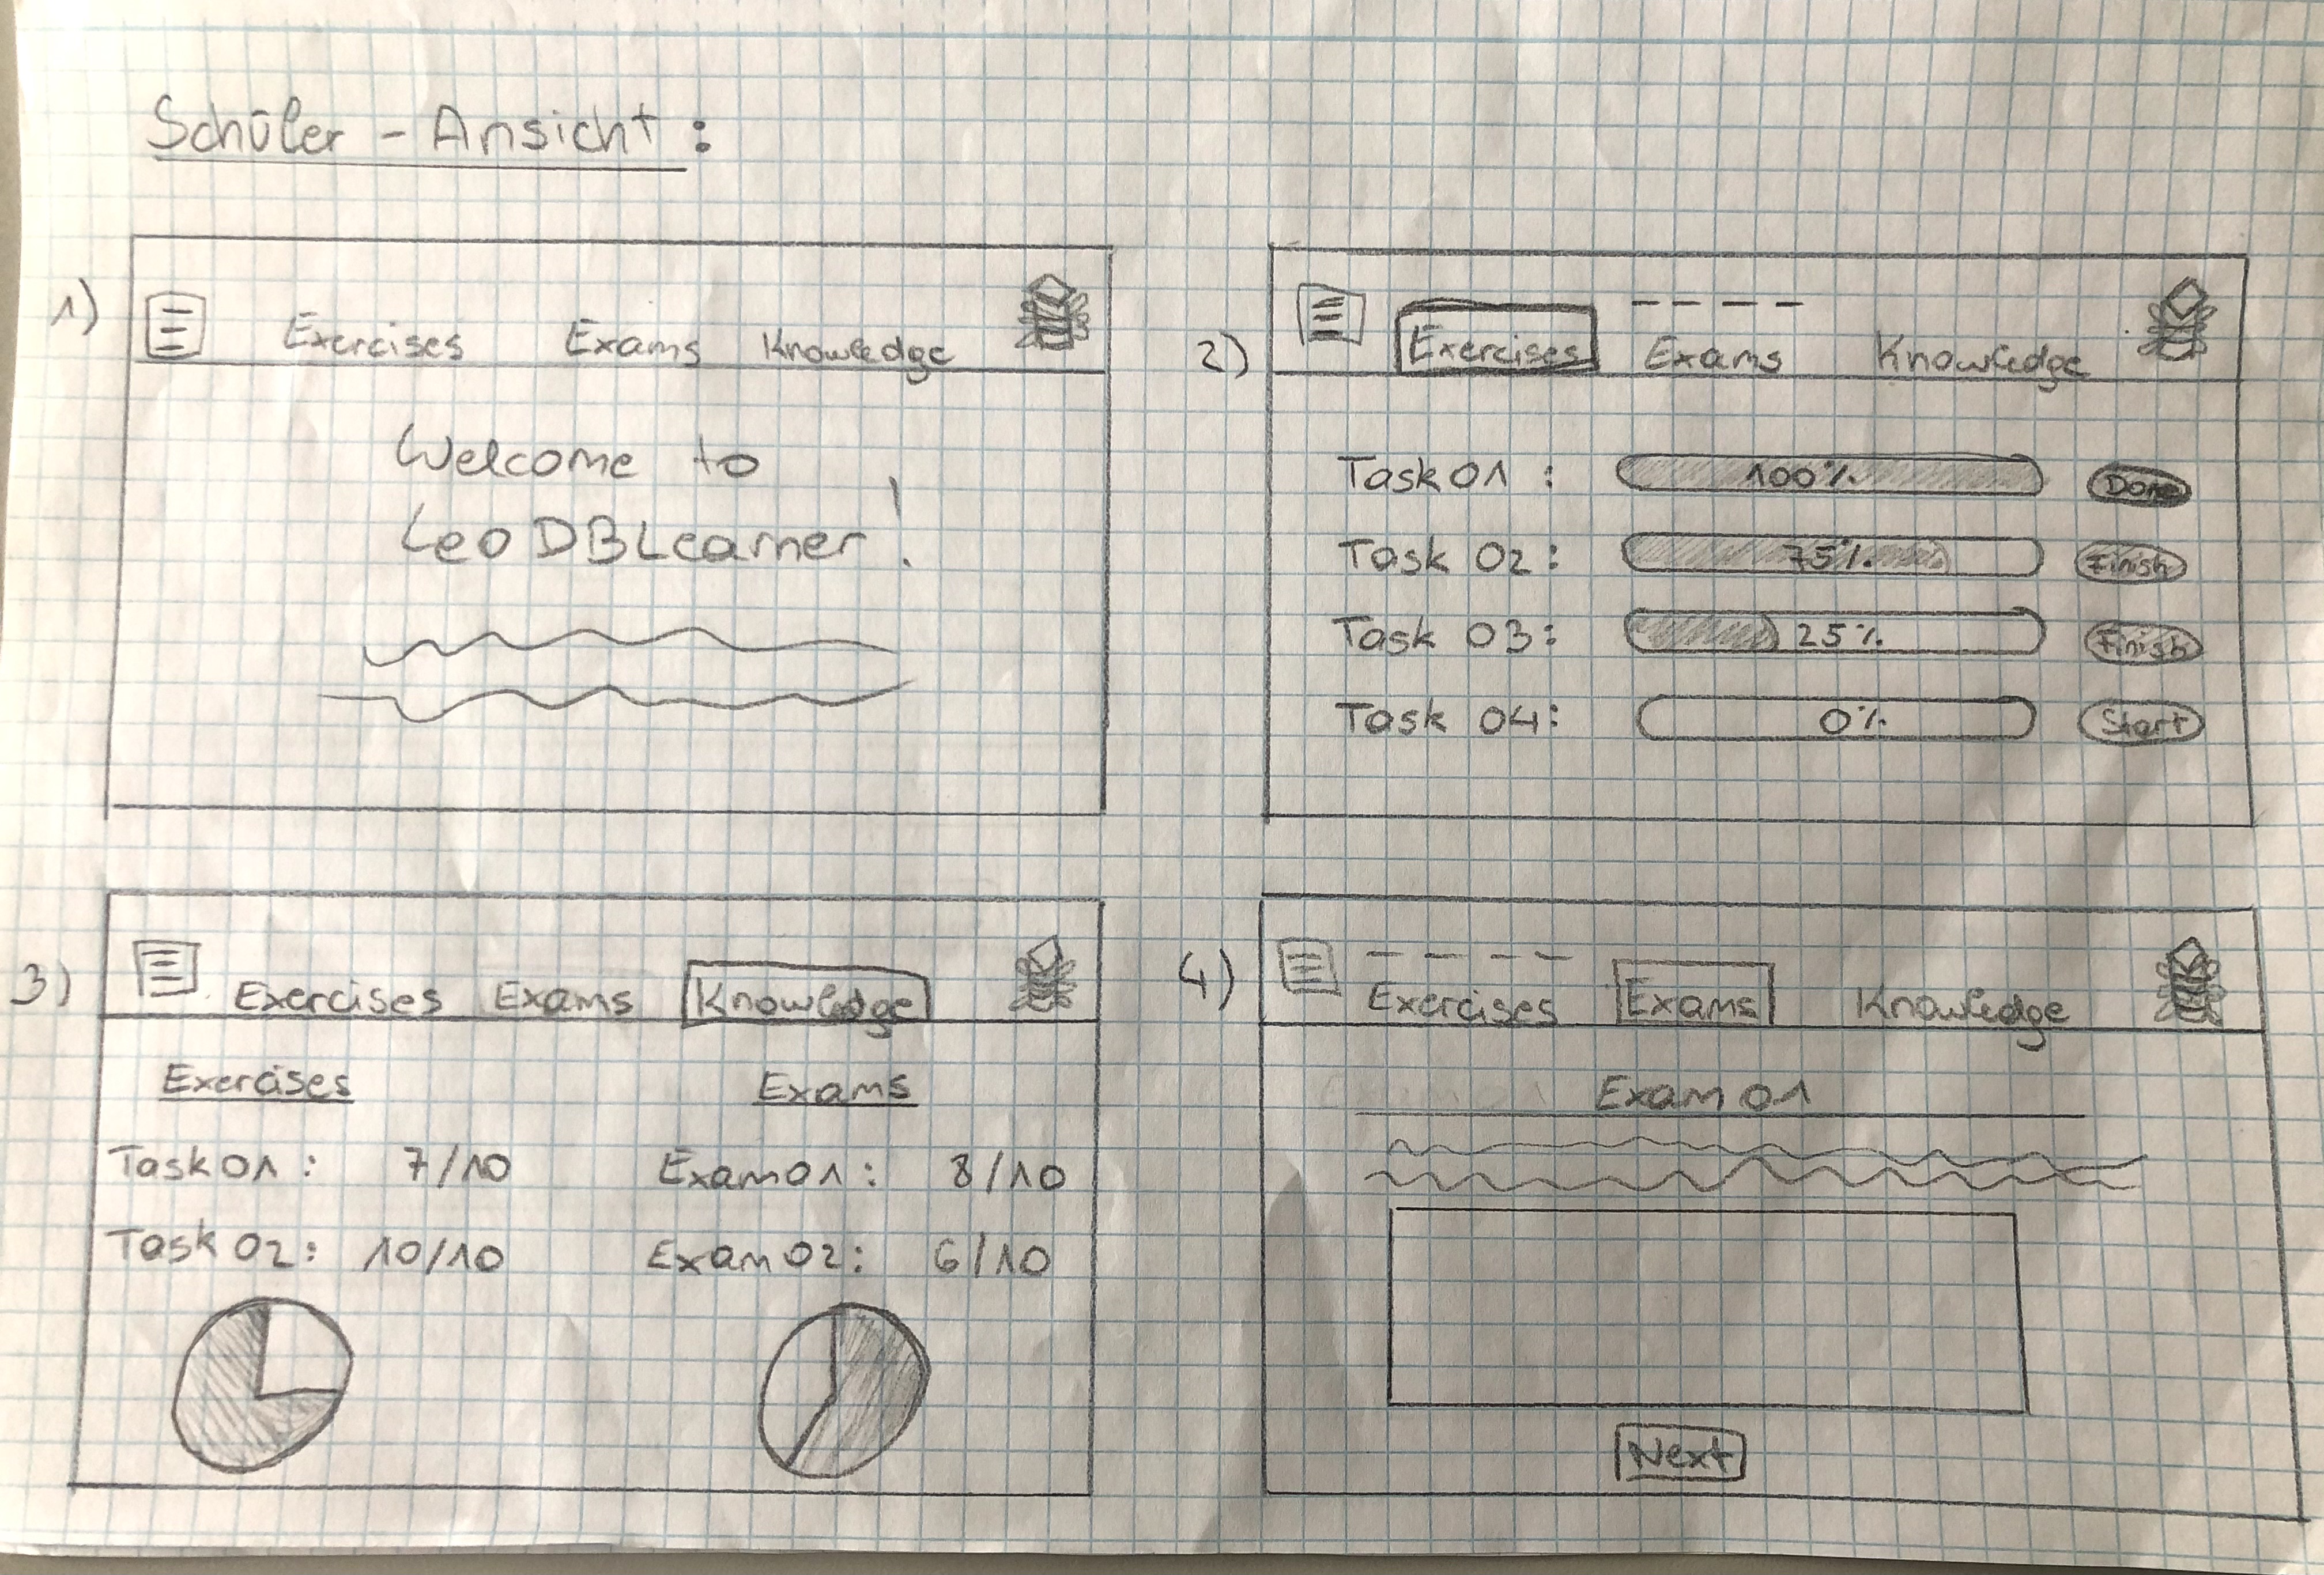 Schüler - Ansicht :
1)
Exercises Exams Knowledge
Welcome to
Leo DBLearner !
2)
Exercises Exams Knowledge
Task 01 : 100% Done
Task 02 : 75% Finish
Task 03 : 25% Finish
Task 04 : 0% Start
3)
Exercises Exams Knowledge
Exercises Exams
Task 01 : 7/10 Exam 01 : 8/10
Task 02 : 10/10 Exam 02 : 6/10
4)
Exercises Exams Knowledge
Exam 01
Next